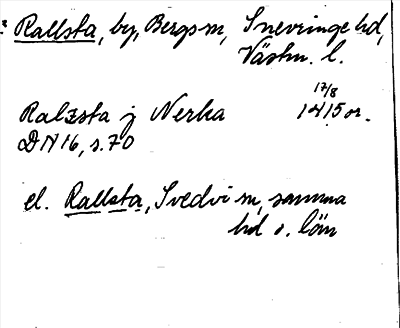 Rallsta, by, Bergs sn, Snevringe hd,
Västm. l.
Ralzsta j Nerka 17/8 1415 or.
DN 16, s. 70
el. Rallsta, Svedvi sn, samma
hd o. län